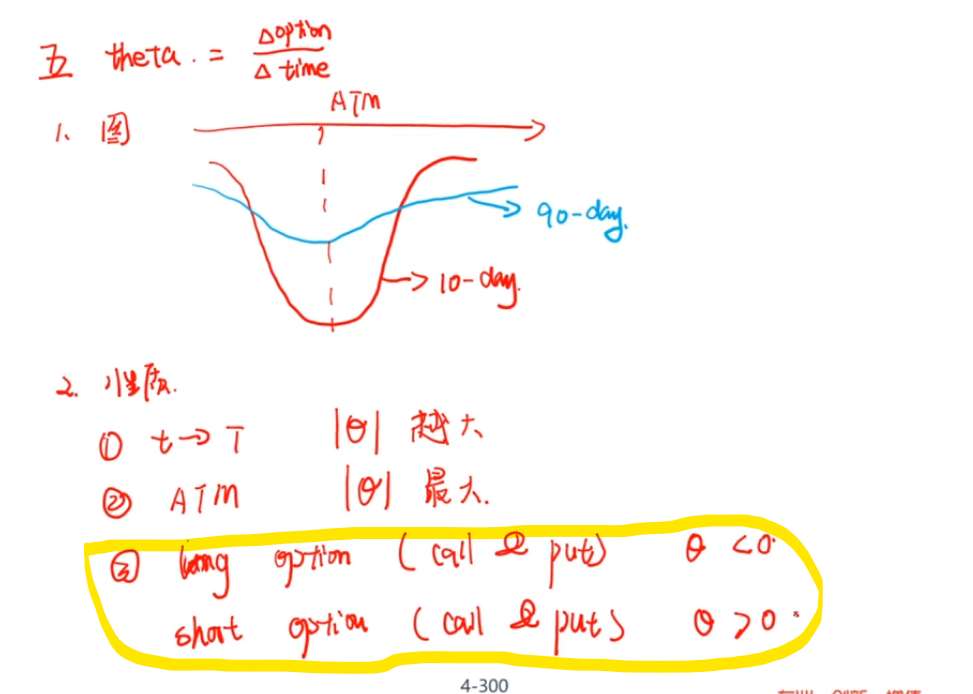 五 theta. = Δoption / Δ time
1、图
ATM
90-day.
10-day.
2. 性质.
① t→T |θ| 越大
② ATM |θ| 最大.
③ long option ( call & put) θ <0.
short option ( call & put) θ >0.
4-300